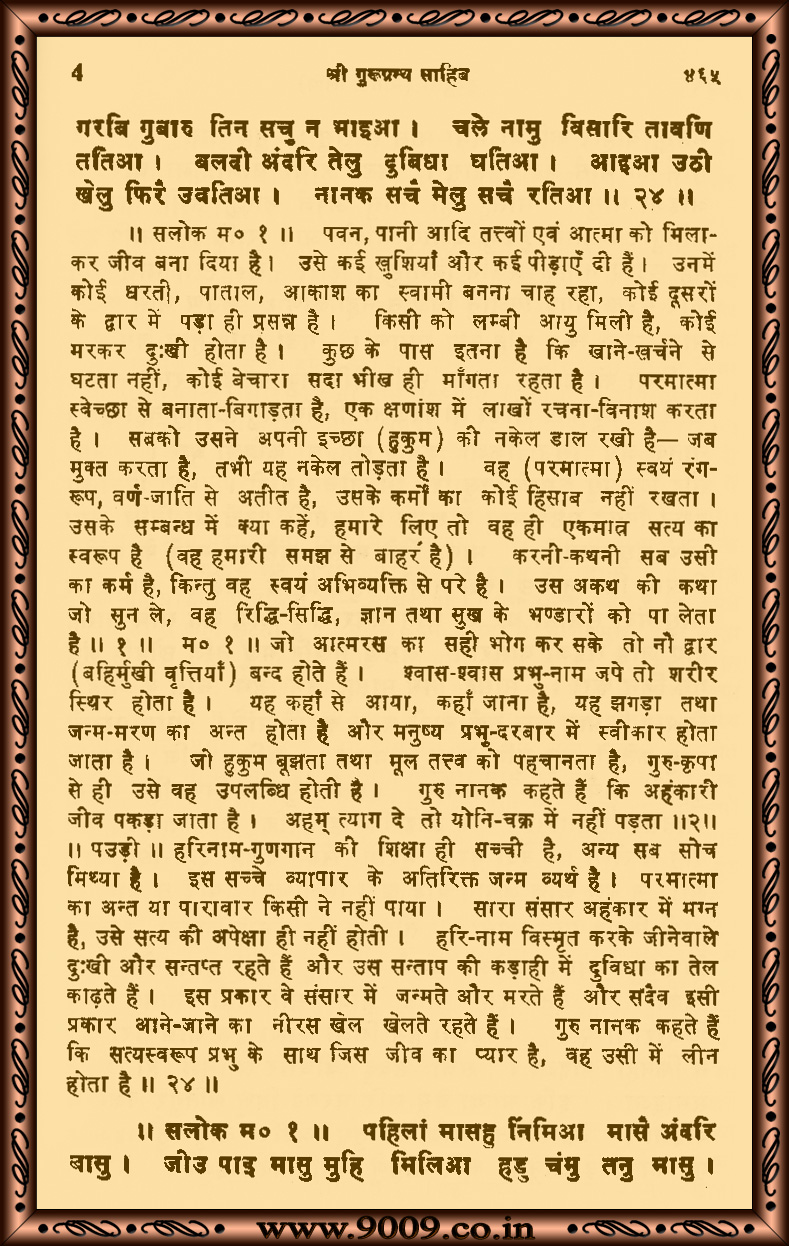 4 श्री गुरूग्रन्थ साहिब ४६५
गरबि गुबारु तिन सचु न भाइआ । चले नामु विसारि तावणि
ततिआ । बलदी अंदरि तेलु दुबिधा घतिआ । आइआ उठी
खेलु फिरै उवतिआ । नानक सचै मेलु सचै रतिआ ॥ २४ ॥
॥ सलोक म० १ ॥ पवन, पानी आदि तत्त्वों एवं आत्मा को मिला-
कर जीव बना दिया है। उसे कई खुशियाँ और कई पीड़ाएँ दी हैं। उनमें
कोई धरती, पाताल, आकाश का स्वामी बनना चाह रहा, कोई दूसरों
के द्वार में पड़ा ही प्रसन्न है । किसी को लम्बी आयु मिली है, कोई
मरकर दुःखी होता है । कुछ के पास इतना है कि खाने-खर्चने से
घटता नहीं, कोई बेचारा सदा भीख ही माँगता रहता है । परमात्मा
स्वेच्छा से बनाता-बिगाड़ता है, एक क्षणांश में लाखों रचना-विनाश करता
है । सबको उसने अपनी इच्छा (हुकुम) की नकेल डाल रखी है— जब
मुक्त करता है, तभी यह नकेल तोड़ता है । वह (परमात्मा) स्वयं रंग-
रूप, वर्ण-जाति से अतीत है, उसके कर्मों का कोई हिसाब नहीं रखता ।
उसके सम्बन्ध में क्या कहें, हमारे लिए तो वह ही एकमात्र सत्य का
स्वरूप है (वह हमारी समझ से बाहर है) । करनी-कथनी सब उसी
का कर्म है, किन्तु वह स्वयं अभिव्यक्ति से परे है । उस अकथ की कथा
जो सुन ले, वह रिद्धि-सिद्धि, ज्ञान तथा सुख के भण्डारों को पा लेता
है ॥ १ ॥ म० १ ॥ जो आत्मरस का सही भोग कर सके तो नौ द्वार
(बहिर्मुखी वृत्तियाँ) बन्द होते हैं । श्वास-श्वास प्रभु-नाम जपे तो शरीर
स्थिर होता है । यह कहाँ से आया, कहाँ जाना है, यह झगड़ा तथा
जन्म-मरण का अन्त होता है और मनुष्य प्रभु-दरबार में स्वीकार होता
जाता है । जो हुकुम बूझता तथा मूल तत्त्व को पहचानता है, गुरु-कृपा
से ही उसे वह उपलब्धि होती है । गुरु नानक कहते हैं कि अहंकारी
जीव पकड़ा जाता है । अहम् त्याग दे तो योनि-चक्र में नहीं पड़ता ॥२॥
॥ पउड़ी ॥ हरिनाम-गुणगान की शिक्षा ही सच्ची है, अन्य सब सोच
मिथ्या है । इस सच्चे व्यापार के अतिरिक्त जन्म व्यर्थ है । परमात्मा
का अन्त या पारावार किसी ने नहीं पाया । सारा संसार अहंकार में मग्न
है, उसे सत्य की अपेक्षा ही नहीं होती । हरि-नाम विस्मृत करके जीनेवाले
दुःखी और सन्तप्त रहते हैं और उस सन्ताप की कड़ाही में दुविधा का तेल
काढ़ते हैं । इस प्रकार वे संसार में जन्मते और मरते हैं और सदैव इसी
प्रकार आने-जाने का नीरस खेल खेलते रहते हैं । गुरु नानक कहते हैं
कि सत्यस्वरूप प्रभु के साथ जिस जीव का प्यार है, वह उसी में लीन
होता है ॥ २४ ॥
॥ सलोक म० १ ॥ पहिलां मासहु निंमिआ मासै अंदरि
बासु । जीउ पाइ मासु मुहि मिलिआ हडु चंमु तनु मासु ।
www.9009.co.in